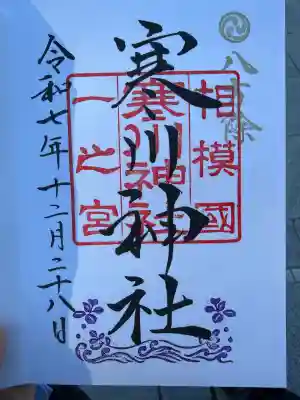 八方除
寒川神社
相模國
寒川神社
一之宮
令和七年十二月二十八日